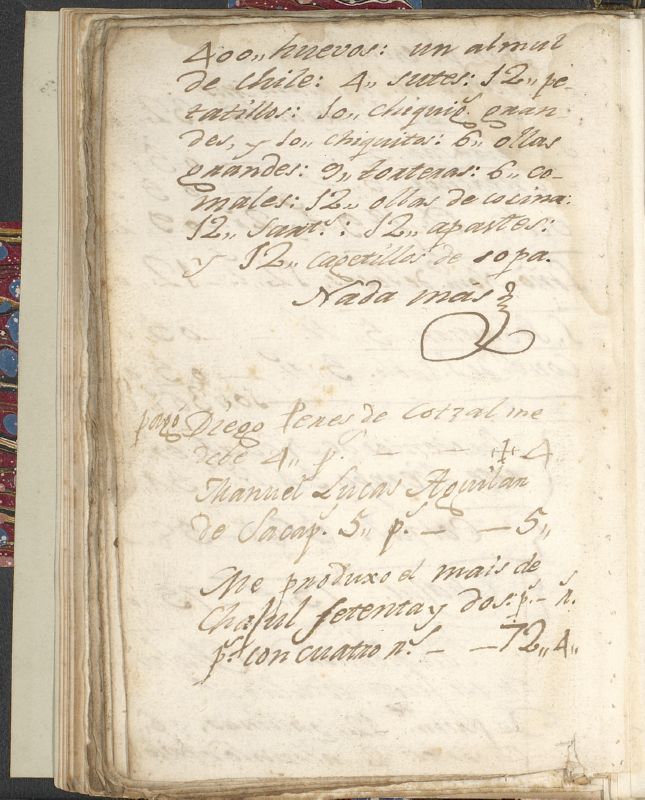 400,, huevos: un almul
de chile: 4,, sutes: 12,, pe-
tatillos: 10,, chiquis. gran-
des, y 10,, chiquitos: 6,, ollas
grandes: 9,, torteras: 6,, co-
males: 12,, ollas de cocina:
12,, Sarts.: 12,, apastes:
y 12,, cagetillos de sopa.
Nada mas
pagó Diego Peres de Cotzal me
debe 4,, ps. — — 4
Manuel Lucas Aguilar
de Sacap. 5,, ps. — — 5,,
Me produxo el mais de
Chajul setenta y dos: ps. — rs.
ps. con cuatro rs. — — 72,, 4,,